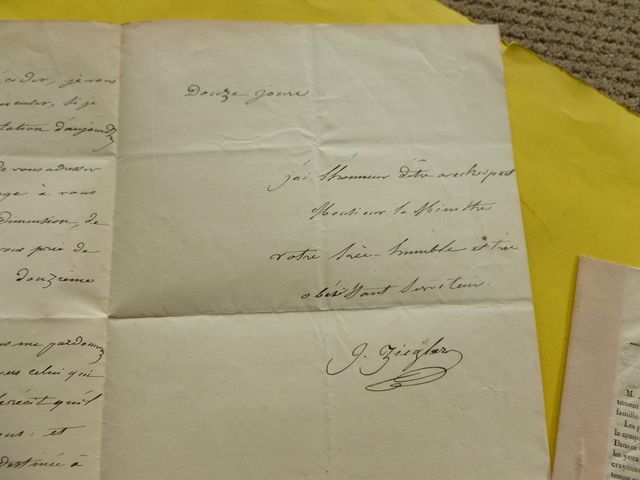 écider, je vous
si je
tation d'aujourd
de vous adresser
ge à vous
dimension, de
vous prie de
douzième
us me pardonnez
celui qui
récit qu'il
ous : et
destinée à
Douze jours.
j'ai l'honneur d'être avec respect
Monsieur le Ministre
votre très humble et très
obéissant serviteur.
J. Ziegler
M.
tement
famille
Les p
la camp
Dans ce
les yeux
crayons
temps